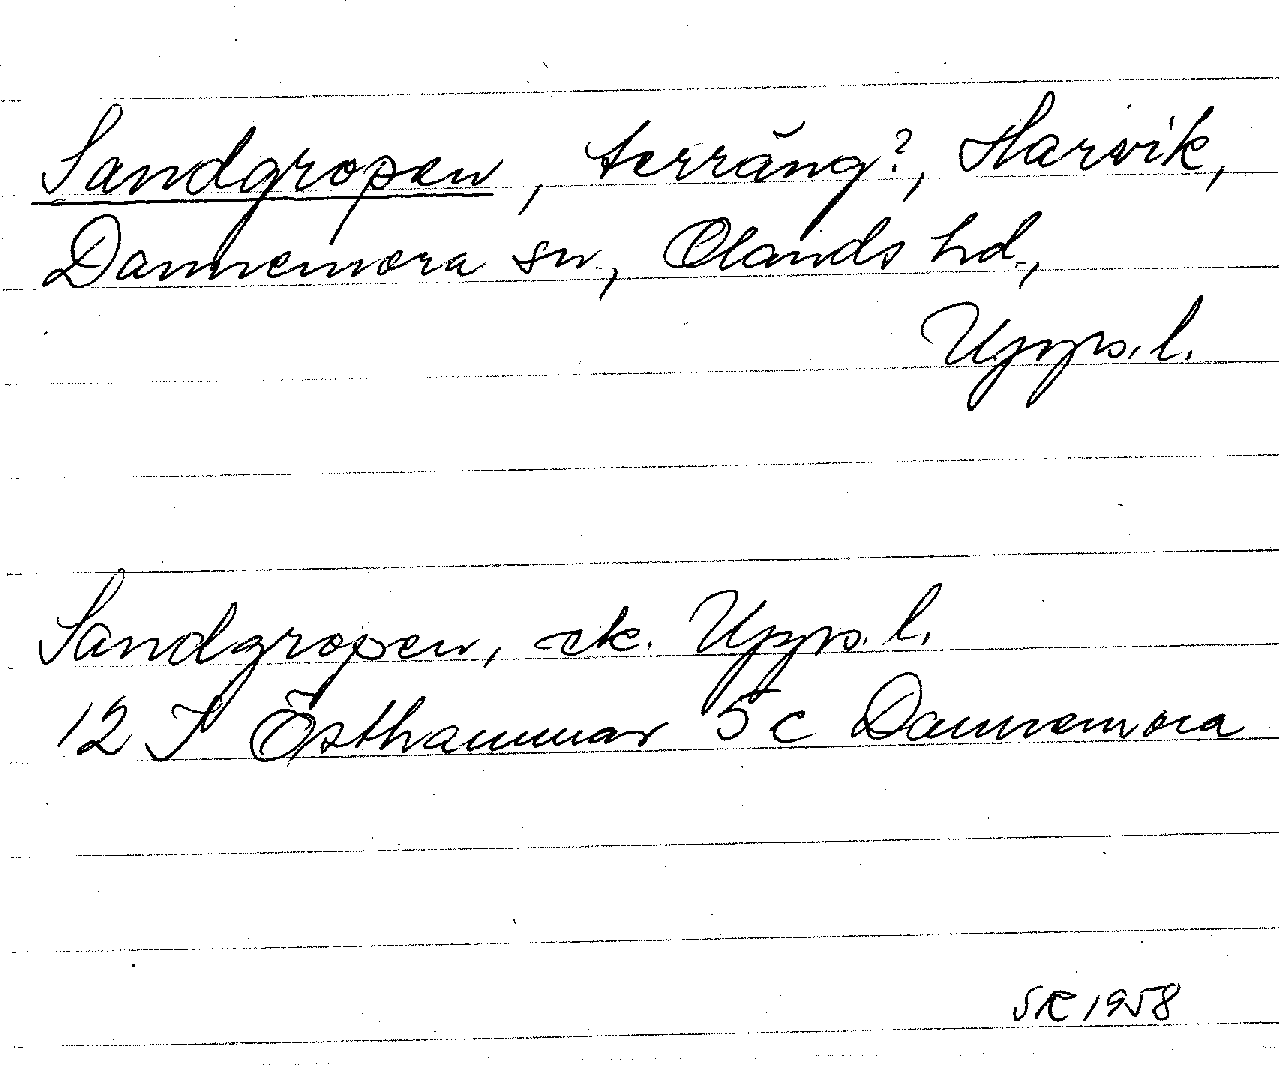 Sandgropen, terräng?, Harvik,
Dannemora sn, Olands hd.,
Upps. l.
Sandgropen, ek. Upps. l.
12 I Östhammar 5c Dannemora
SR 1958